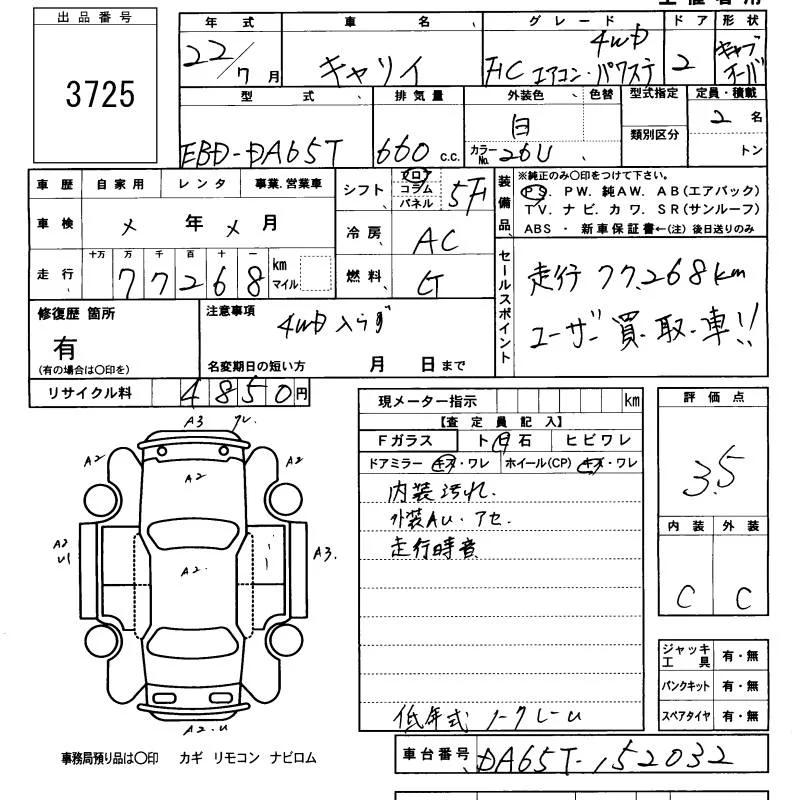 出品番号
3725
年式 車名 グレード ドア 形状
22/7月 キャリイ 4WD FC エアコン・パワステ 2 キャブオーバ
型式 排気量 外装色 色替 型式指定 定員・積載
類別区分
EBD-DA65T 660 c.c. 白 カラーNo. 26U 2名
トン
車歴 自家用 レンタ 事業.営業車
車検 メ年メ月
走行 十万 万 千 百 十 一
77268 km マイル
シフト フロア コラム パネル 5F
冷房 AC
燃料 G
装備品
※純正のみ〇印をつけて下さい。
PS. PW. 純AW. AB(エアバック)
TV. ナビ. カワ. SR(サンルーフ)
ABS ・ 新車保証書←(注)後日送りのみ
セールスポイント
走行 77,268km
ユーザー買取車!!
修復歴 箇所
有
(有の場合は〇印を)
注意事項
4WD入らず
名変期日の短い方 月 日まで
リサイクル料 4850円
現メーター指示 km
【査定員記入】
Fガラス ト日石 ヒビワレ
ドアミラー キズ・ワレ ホイール(CP) キズ・ワレ
内装汚れ.
外装AU・アセ.
走行時音
低年式 ノークレーム
評価点
3.5
内装 外装
C C
ジャッキ工具 有・無
パンクキット 有・無
スペアタイヤ 有・無
A3
A2
A2
A2
A2
U1
A2
A3.
A2.U
事務局預り品は〇印 カギ リモコン ナビロム
車台番号 DA65T-152032